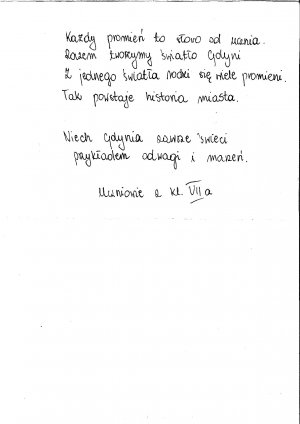 Każdy promień to słowo od ucznia.
Razem tworzymy światło Gdyni
Z jednego światła rodzi się wiele promieni.
Tak powstaje historia miasta.
Niech Gdynia zawsze świeci
przykładem odwagi i marzeń.
Uczniowie z kl. VII a